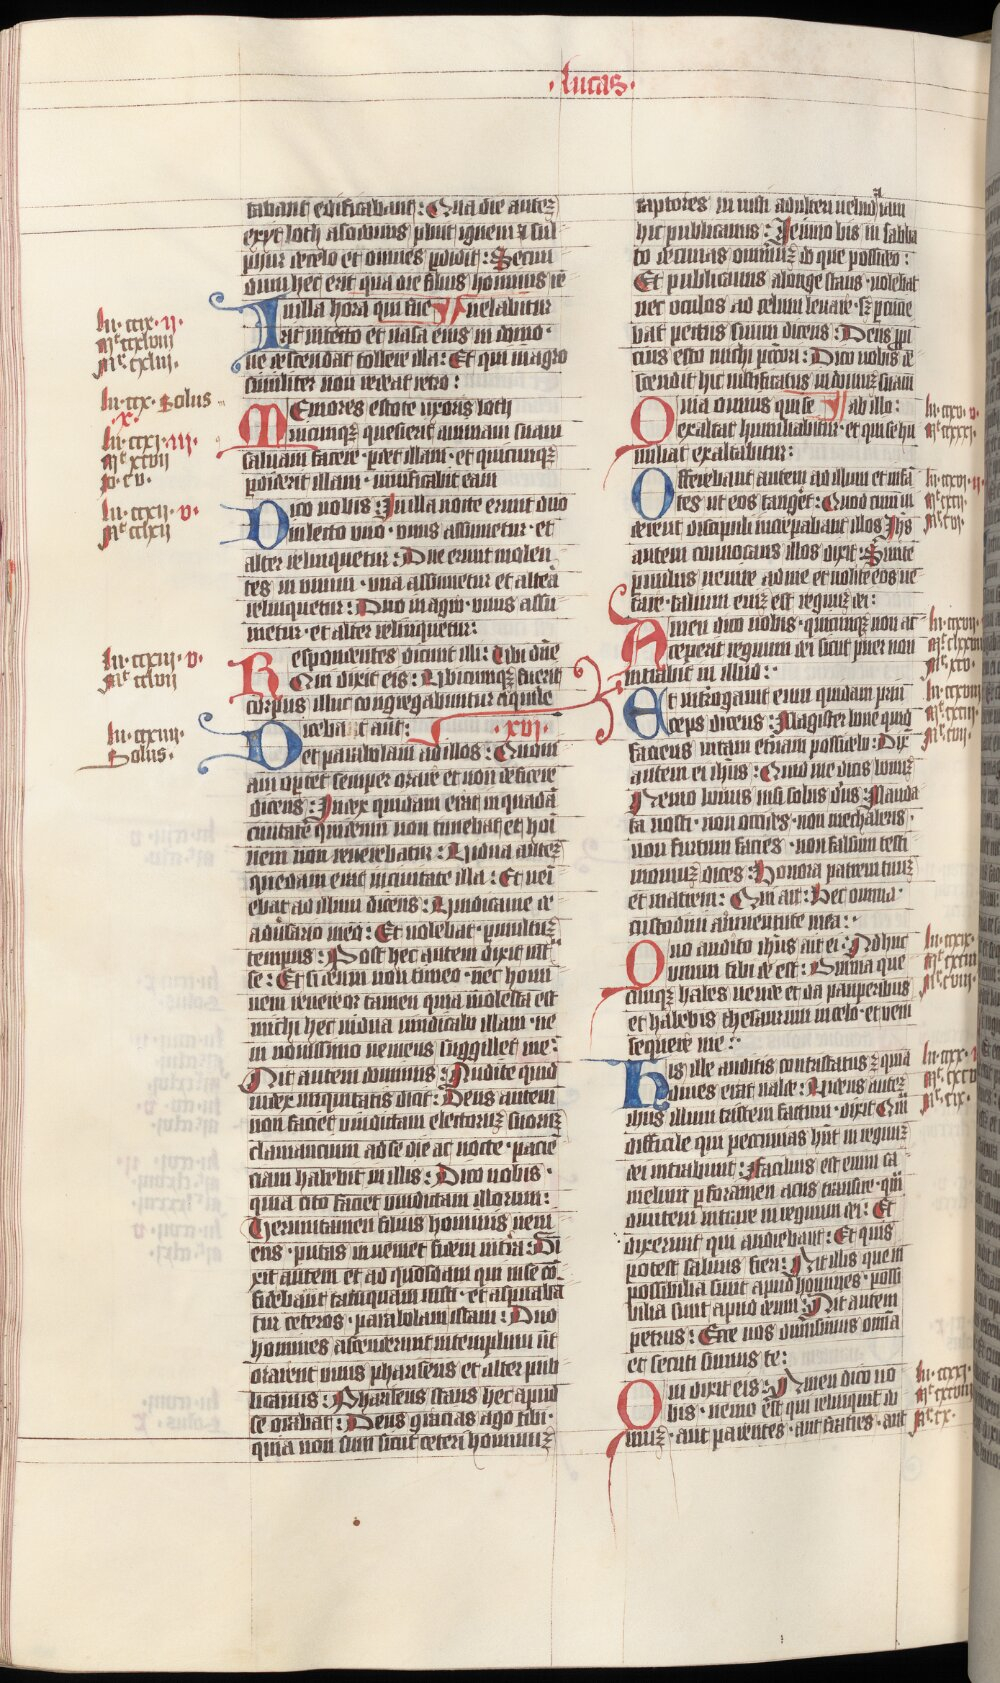 ·lucas·
tabant edificabant: Qua die autez
exyt loth a sodomis pluit ignem & sul
phur de celo et omnes pdidit: Secun
dum hec erit qua die filius hominis re
In illa hora qui fue uelabitur
rit in tecto et uasa eius in domo·
ne descendat tollere illa: Et qui in agro
similiter non redeat retro:
Memores estote uxoris loth
Quicunqz quesierit animam suam
saluam facere pdet illam· et quicunqz
pdiderit illam· uiuificabit eam
Dico uobis: In illa nocte erunt duo
in lecto uno· unus assumetur· et
alter relinquetur: Due erunt molen
tes in unum· una assumetur et altera
relinquetur: Duo in agro· unus assu
metur· et alter relinquetur:
Respondentes dicunt illi: Ubi dñe
Qui dixit eis: Ubicunqz fuerit
corpus illuc congregabuntur aquile
Dicebat aut: ·xvi·
et parabolam ad illos: Quoni
am oportet semper orare et non deficere
dicens: Iudex quidam erat in quadā
ciuitate qui deum non timebat et hoī
nem non reuerebatur: Uidua autez
quedam erat in ciuitate illa: Et ueni
ebat ad illum dicens: Uindica me de
aduersario meo: Et nolebat· p multuz
tempus: Post hec autem dixit int
se: Et si deum non timeo· nec homi
nem reuereor tamen quia molesta est
michi hec uidua uindicabo illam· ne
in nouissimo ueniens suggillet me:
Ait autem dominus: Audite quid
iudex iniquitatis dicit: Deus autem
non faciet uindictam electoruz suoruz
clamancium ad se die ac nocte· pacie
ciam habebit in illis: Dico uobis·
quia cito faciet uindictam illorum:
Uerumtamen filius hominis ueni
ens· putas inueniet fidem in terra: Di
xit autem et ad quosdam qui in se cō
fidebant tamquam iusti· et aspnaba
tur ceteros· parabolam istam: Duo
homines ascenderunt in templum ut
orarent unus phariseus et alter pub
licanus: Phariseus stans hec apud
se orabat: Deus gracias ago tibi·
quia non sum sicut ceteri hominuz
raptores iniusti adulteri uelud iam
hic publicanus: Ieiuno bis in sabba
to decimas omniuz do que possideo:
Et publicanus a longe stans· nolebat
nec oculos ad celum leuare· sz pcucie
bat pectus suum dicens: Deus ppi
cius esto michi pctori: Dico uobis de
scendit hic iustificatus in domuz suam
Quia omnis qui se ab illo:
exaltat humiliabitur· et qui se hu
miliat exaltabitur:
Offerebant autem ad illum et infā
tes ut eos tangeret: Quod cum ui
derent discipuli increpabant illos Ihs
autem conuocans illos dixit: Sinite
pueros uenire ad me et nolite eos ue
tare· talium eniz est regnuz dei:
Amen dico uobis· quicunqz non ac
ceperit regnum dei sicut puer non
intrabit in illud:·
Et introgauit eum quidam prin
ceps dicens: Magister bone quid
faciens uitam etnam possidebo: Dix
autem ei ihus: Quid me dicis bonuz
Nemo bonus nisi solus deus: Manda
ta nosti· non occides· non mechaberis·
non furtum facies· non falsum testi
moniuz dices: Honora patrem tuuz
et matrem: Qui ait: Hec omnia·
custodiui a iuuentute mea:·
Quo audito ihus ait ei: Adhuc
unum tibi de est: Omnia que
cunqz habes uende et da pauperibus
et habebis thesaurum in celo· et ueni
sequere me:·
His ille auditis contristatus z quia
diues erat ualde: Uidens autez
ihus illum tristem factum· dixit Quā
difficile qui pecunias hñt in regnuz
dei intrabunt: Facilius est enim ca
melum p foramen acus transire· qm
diuitem intrare in regnum dei: Et
dixerunt qui audiebant: Et quis
potest saluus fieri: Ait illis que in
possibilia sunt apud homines· possi
bilia sunt apud deum: Ait autem
petrus: Ecce nos dimisimus omnia
et secuti sumus te:
Qui dixit eis: Amen dico uo
bis· nemo est qui reliquit do
muz· aut parentes· aut fratres· aut
lu·ccix·ii·
mt ccxlviii
mr cxliii·
lu·ccx· Solus
·x·
lu·ccxi·iii·
mt xcvii
io·cv·
lu·ccxii·v·
mt cclxii
lu·ccxiii·v·
mt cclvii
lu·ccxiiii·
Solus·